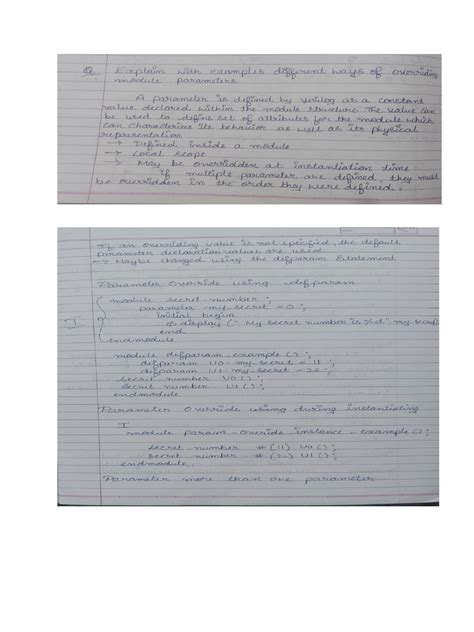 Q Explain with examples different ways of overriding
module parameters.
A parameter is defined by Verilog as a constant
value declared within the module structure. The value can
be used to define set of attributes for the module which
can characterize its behavior as well as its physical
representation.
→ Defined inside a module
→ Local scope
→ May be overridden at instantiation time
If multiple parameter are defined, they must
be overridden in the order they were defined.
If an overriding value is not specified, the default
parameter declaration values are used.
→ Maybe changed using the defparam statement
Parameter Override using defparam
module secret-number ;
parameter my-secret = 0 ;
I initial begin
$ display (" My secret number is %d", my-secret
end
endmodule
module defparam-example () ;
defparam U0. my-secret = 11 ;
defparam U1. my-secret = 22 ;
secret-number U0 () ;
secret number U1 () ;
endmodule
Parameter Override using during instantiating
I
module param-override-instance-example () ;
secret-number # (11) U0 () ;
secret-number # (22) U1 () ;
endmodule.
Parameter more than one parameter